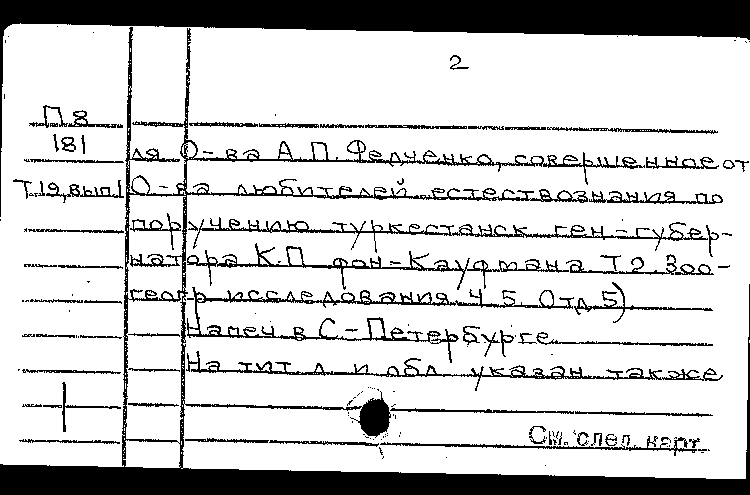 2
П 8
181
Т 19, вып 1
ля О-ва А. П. Федченко, совершенное от
О-ва любителей естествознания по
поручению туркестанск ген-губер-
натора К. П фон-Кауфмана Т 2. Зоо-
геогр исследования. Ч 5. Отд 5)
Напеч в С-Петербурге
На тит л и обл указан также
См. след. карт